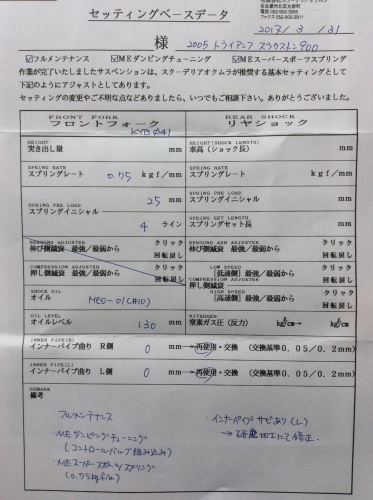 セッティングベースデータ
名古屋市北区
052-902-
ファクス 052-902-2911
2017/3/31
様 2005 トライアンフ スラクストン900
☑フルメンテナンス ☑MEダンピングチューニング ☑MEスーパースポーツスプリング
作業が完了いたしましたサスペンションは、スターデリアオクムラが推奨する基本セッティングとして
下記のようにアジャストしてあります。
セッティングの変更やご不明な点などありましたら、いつでもご相談下さい。ありがとうございました。
FRONT FORK REAR SHOCK
フロントフォーク リヤショック
KYB φ41
HEIGHT HEIGHT[SHOCK LENGTH]
突き出し量 mm 車高(ショック長) mm
SPRING RATE SPRING RATE
スプリングレート 0.75 kgf/mm スプリングレート kgf/mm
SPRING PRE LOAD 25 mm SPRING PRE LOAD
スプリングイニシャル スプリングイニシャル mm
4 ライン SPRING SET LENGTH
スプリングセット長 mm
REBOUND ADJUSTER クリック REBOUND ADJ クリック
伸び側減衰 最強/最弱から 回転戻し 伸び側減衰 最強/最弱から 回転戻し
COMPRESSION ADJUSTER クリック LOW SPEED クリック
押し側減衰 最強/最弱から 回転戻し [低速側]最強/最弱から 回転戻し
COMPRESSION ADJUSTER
押し側減衰
SHOCK OIL HIGH SPEED クリック
オイル MEO-01(#10) [高速側]最強/最弱から 回転戻し
OIL LEVEL NITROGEN
オイルレベル 130 mm 窒素ガス圧(反力) kg/cm → kg/cm
INNER PIPE[R]
インナーパイプ曲り R側 0 mm →再使用・交換 (交換基準0.05/0.2mm)
INNER PIPE[L]
インナーパイプ曲り L側 0 mm →再使用・交換 (交換基準0.05/0.2mm)
REMARK
備考
フルメンテナンス
・MEダンピングチューニング
(コントロールバルブ組み込み)
・MEスーパースポーツスプリング
(0.75kgf/mm)
・インナーパイプ サビあり(L)
→研磨加工にて修正.